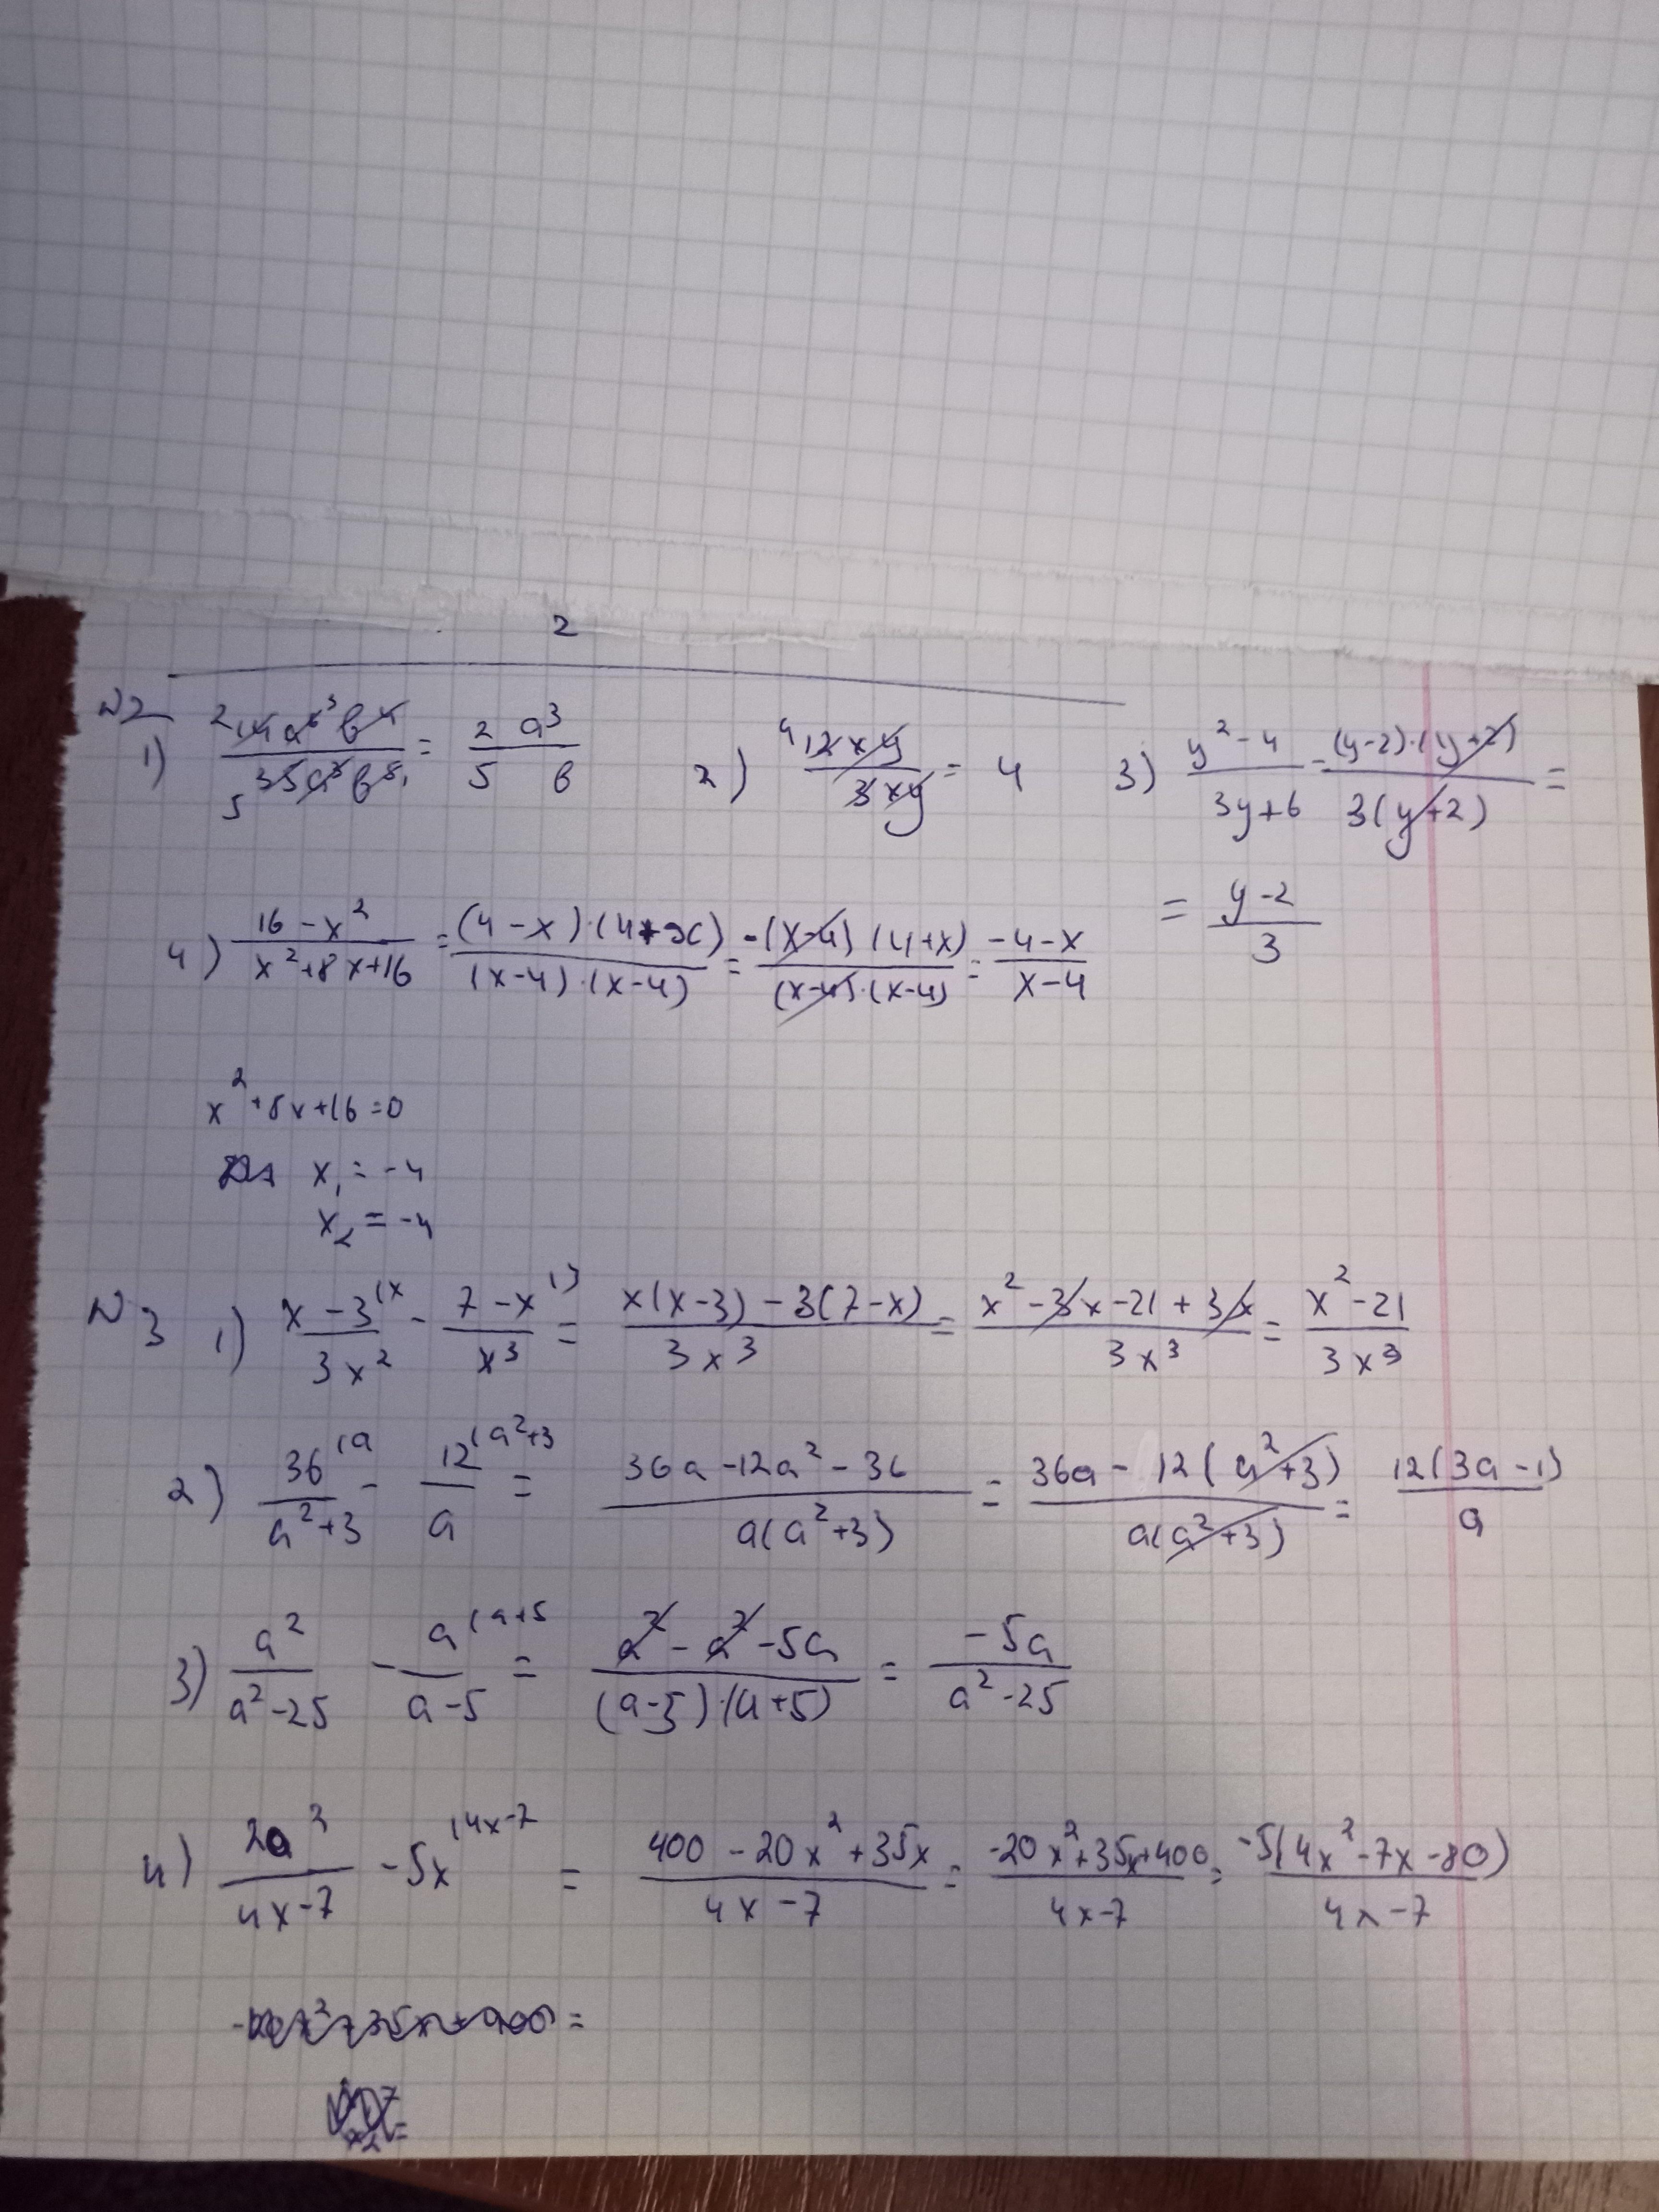 2
N2
1) 2 14a⁶ ³ b⁴ / 5 35a³b⁵ ₁ = 2 a³ / 5 b 2) 4 12xy / 3xy = 4 3) y² - 4 / 3y+6 = (y-2)·(y+2) / 3(y+2) =
= y-2 / 3
4) 16 - x² / x²+8x+16 = (4-x)·(4+x) / (x-4)·(x-4) = -(x-4)(4+x) / (x-4)·(x-4) = -4-x / x-4
x²+8x+16=0
x₁ = -4
x₂ = -4
N3 1) x-3 (x / 3x² - 7-x ⁽³⁾ / x³ = x(x-3) - 3(7-x) / 3x³ = x² - 3x - 21 + 3x / 3x³ = x² - 21 / 3x³
2) 36 (a / a²+3 - 12 (a²+3 / a = 36a - 12a² - 36 / a(a²+3) = 36a - 12(a²+3) / a(a²+3) = 12(3a-1) / a
3) a² / a²-25 - a (a+5 / a-5 = a² - a² - 5a / (a-5)·(a+5) = -5a / a²-25
4) 20² / 4x-7 - 5x (4x-7 = 400 - 20x² + 35x / 4x-7 = -20x²+35x+400 / 4x-7 = -5(4x²-7x-80) / 4x-7